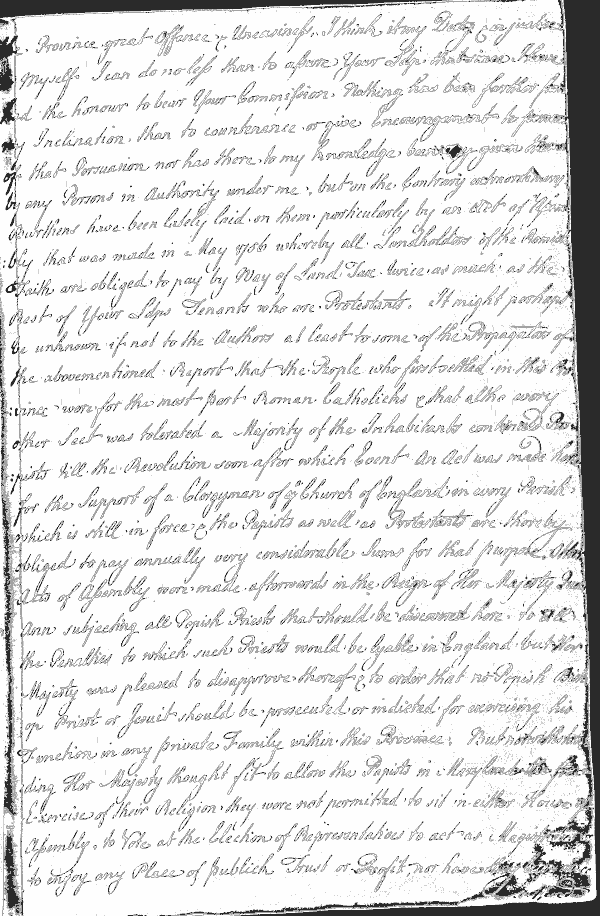 Province great Offence & Uneasiness. I think it my Duty & in justice
Myself I can do no less than to assure Your Ldp. that since I have
the honour to bear Your Commission. Nothing has been further from
my Inclination than to countenance or give Encouragement to
of that Persuasion nor has there to my knowledge been any given them
by any Persons in Authority under me, but on the Contrary extraordinary
Burthens have been lately laid on them particularly by an Act of Assem
:bly that was made in May 1756 whereby all Landholders of the Romish
Faith are obliged to pay by Way of Land Tax twice as much as the
Rest of Your Ldps Tenants who are Protestants. It might perhaps
be unknown if not to the Authors at least to some of the Propagators of
the abovementioned Report that the People who first settled in this Pro
:vince were for the most part Roman Catholicks & that altho every
other Sect was tolerated a Majority of the Inhabitants continued Pa
:pists till the Revolution soon after which Event An Act was made here
for the Support of a Clergyman of ye Church of England in every Parish
which is still in force & the Papists as well as Protestants are thereby
obliged to pay annually very considerable Sums for that purpose. Other
Acts of Assembly were made afterwards in the Reign of Her Majesty Queen
Ann subjecting all Popish Priests that should be discovered here to all
the Penalties to which such Priests would be lyable in England but Her
Majesty was pleased to disapprove thereof & to order that no Popish Bish
op Priest or Jesuit should be prosecuted or indicted for exercising his
Function in any private Family within this Province. But notwithstan
ding Her Majesty thought fit to allow the Papists in Maryland the free
Exercise of their Religion they were not permitted to sit in either House of
Assembly, to Vote at the Election of Representatives to act as Magistrates
to enjoy any Place of publick Trust or Profit nor have they